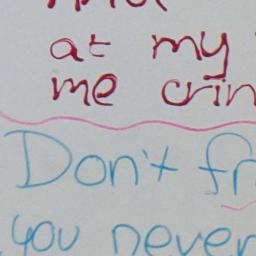 at my
me crin
Don't fr
you never